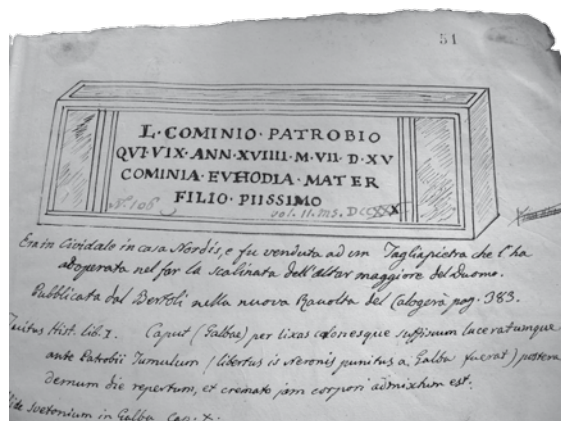 51
L·COMINIO·PATROBIO
QVI·VIX·ANN·XVIIII·M·VII·D·XV
COMINIA·EVHODIA·MATER
FILIO·PIISSIMO
N.º 106
vol. II. ms. DCCXXX
Era in Cividale in casa Nordis, e fu venduta ad un Tagliapietra che l'ha
adoperata nel far la scalinata dell'altar maggiore del Duomo.
Pubblicata dal Bertoli nella nuova Raccolta del Calogerà pag. 383.
Tacitus Hist. lib. I. Caput (Galbae) per lixas calonesque suffixum laceratumque
ante Patrobii Tumulum (libertus is Neronis punitus a Galba fuerat) postera
demum die repertum, et cremato jam corpori admixtum est.
Vide Svetonium in Galba Cap. X.